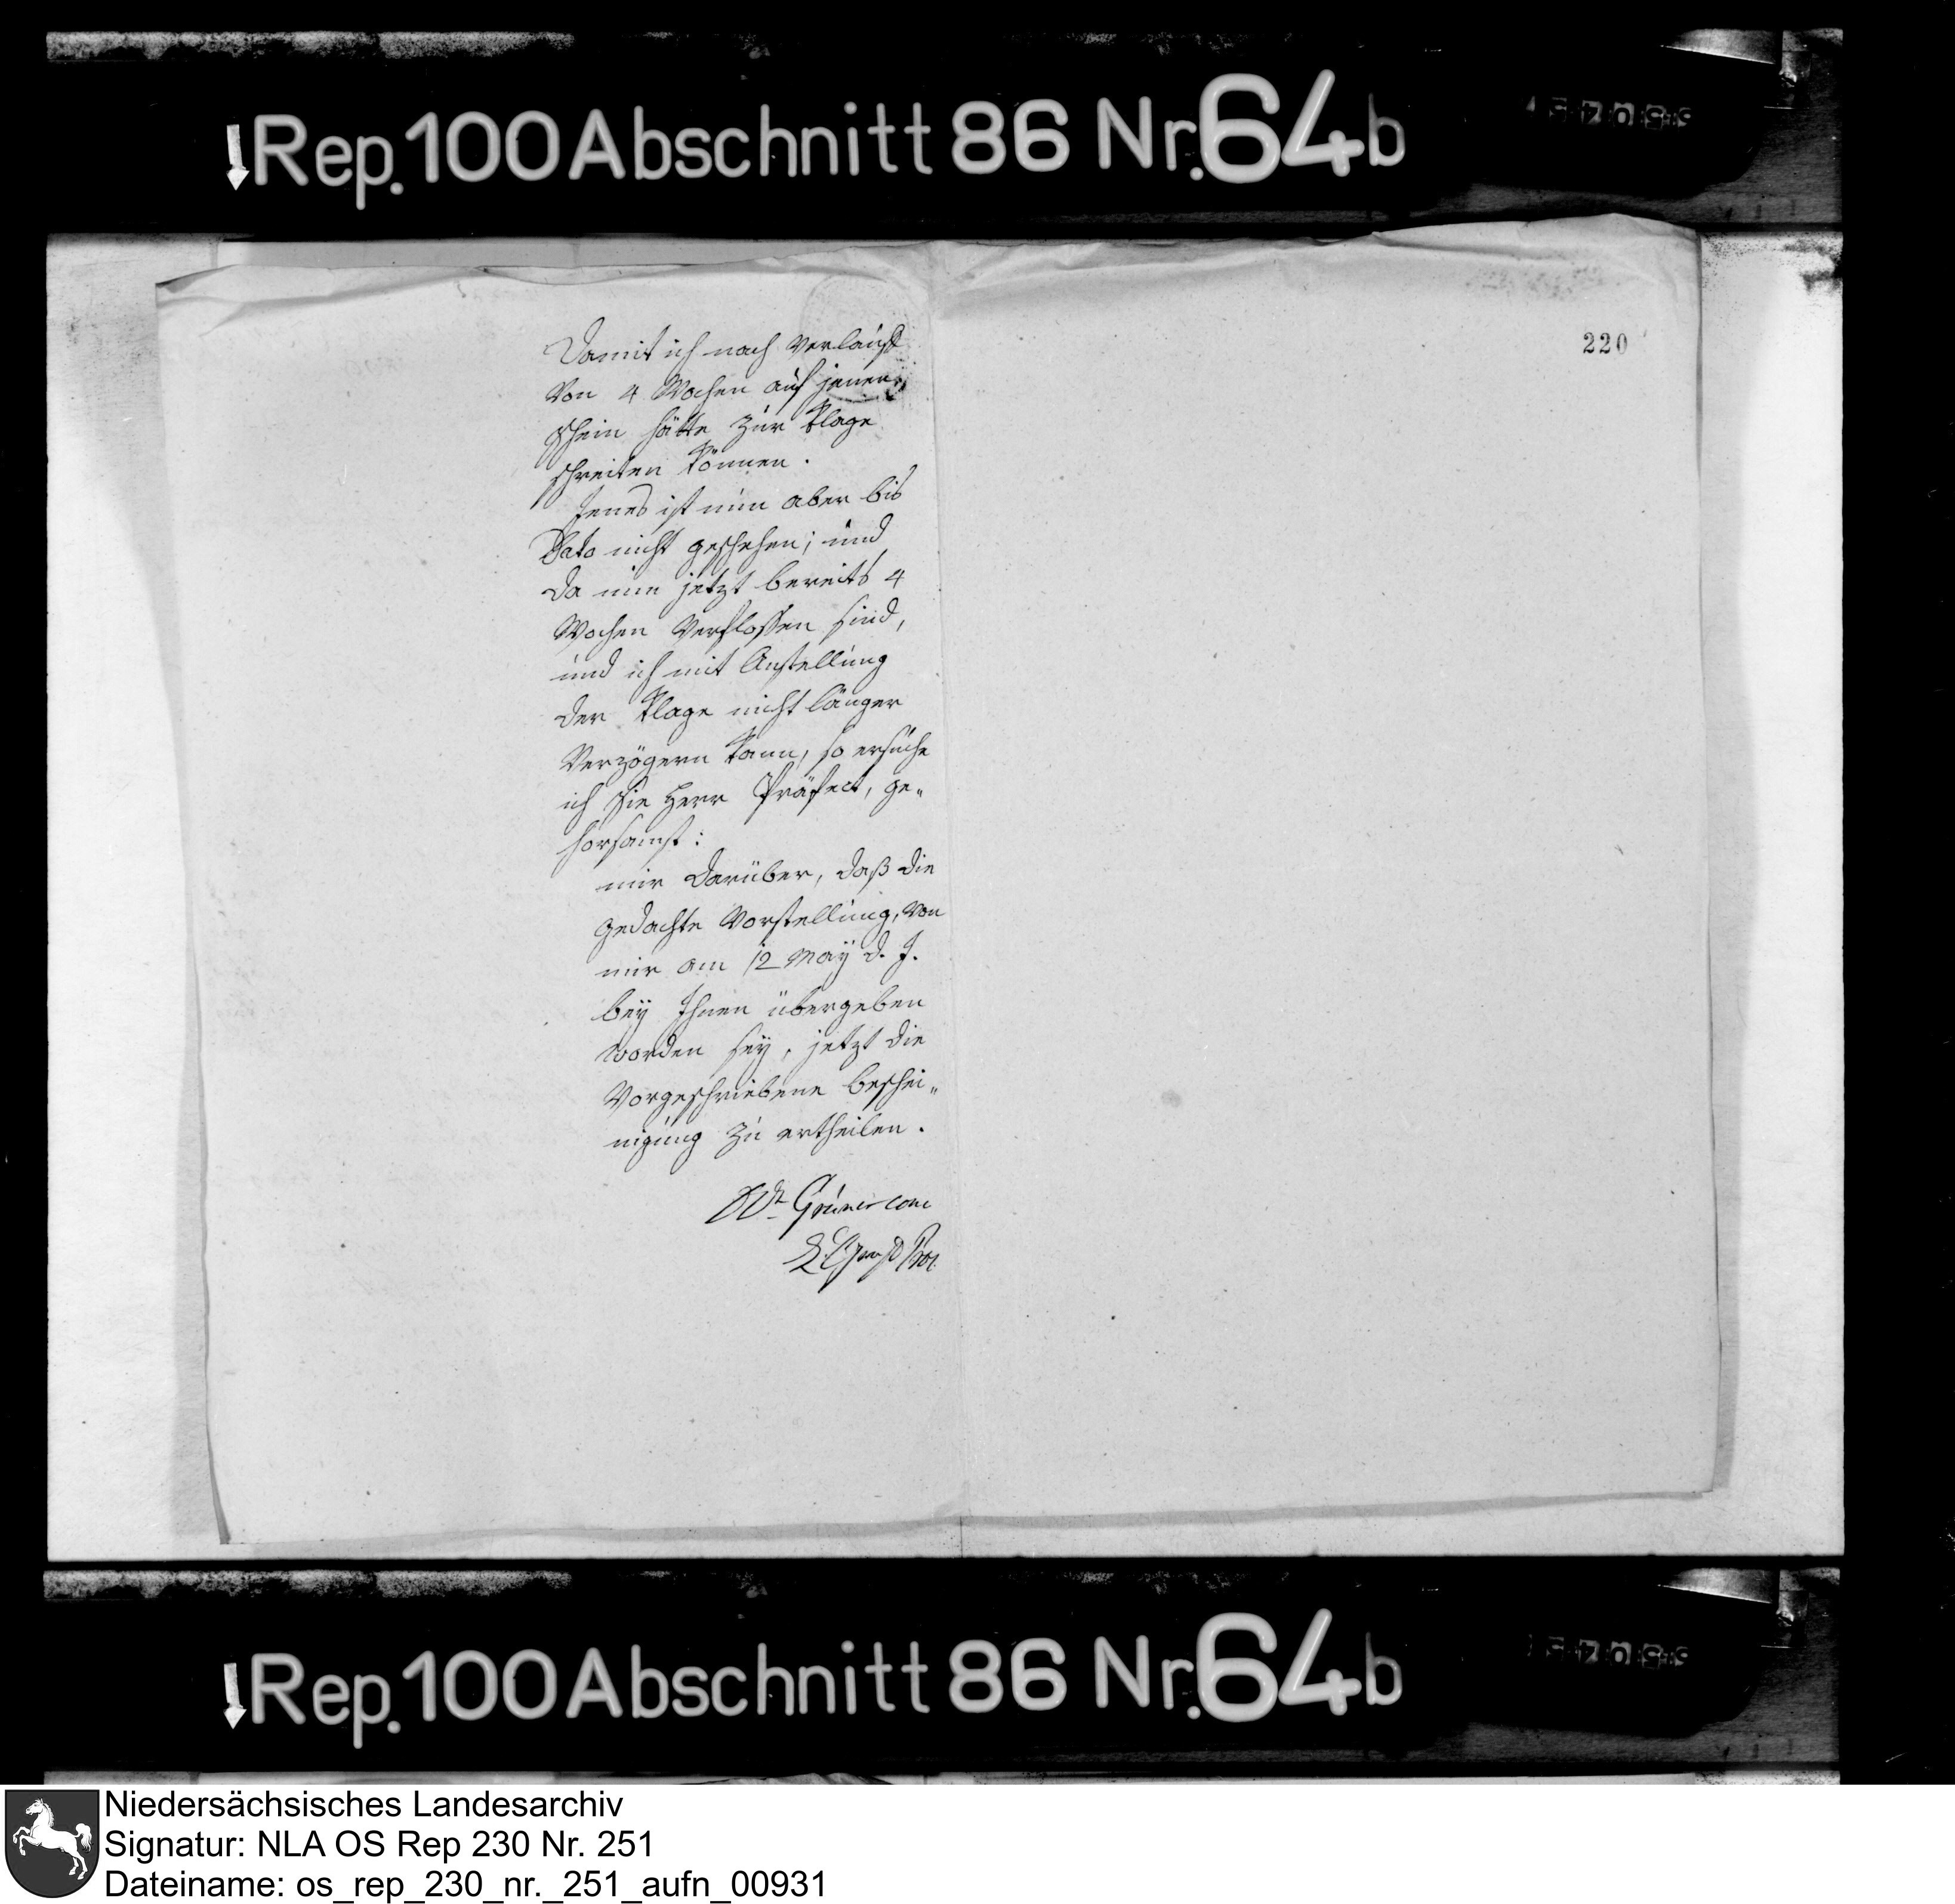 Rep. 100 Abschnitt 86 Nr. 64b
220
Damit ich nach Verlauf
von 4 Wochen auf jenen
Schein hätte zur Klage
schreiten können.
Jenes ist nun aber bis
Dato nicht geschehen; und
da nun jetzt bereits 4
Wochen verflossen sind,
und ich mit Anstellung
der Klage nicht länger
verzögern kann, so ersuche
ich Sie Herr Präfect, ge„
horsamst:
mir darüber, daß die
gedachte Vorstellung, von
mir am 12 May d. J.
bey Ihnen übergeben
worden sey, jetzt die
vorgeschriebene beschei„
nigung zu ertheilen.
Gruner
Rep. 100 Abschnitt 86 Nr. 64b
Niedersächsisches Landesarchiv
Signatur: NLA OS Rep 230 Nr. 251
Dateiname: os_rep_230_nr._251_aufn_00931